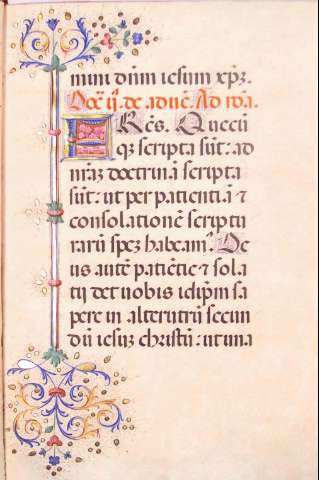 muni dn̄m iesum xp̄ꝫ.
Dōc̄. ij. de aduē. Ad rōa.
FRēs. Quecū
qꝫ scripta sūt: ad
nr̄aꝫ doctrinā scripta
sūt: ut per patientiā ⁊
consolationē scriptu
rarū speꝫ habeamꝰ. De
us autē patiētie ⁊ sola
tij det uobis idip̄m sa
pere in alterutrū secun
dū iesuꝫ christū: ut una